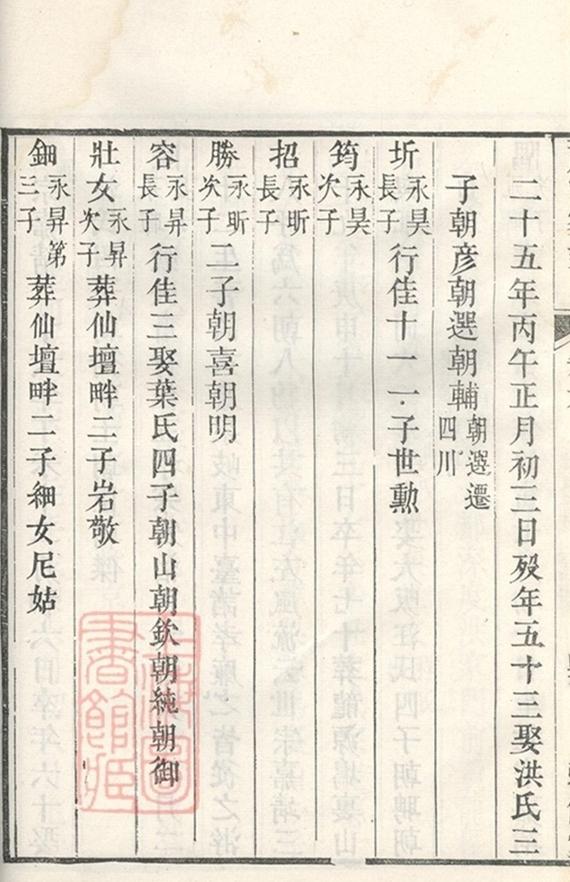 二十五年丙午正月初三日歿年五十三娶洪氏三
子朝彦朝選朝輔朝選遷四川
圻永昊長子行佳十一一子世勳
筠永昊次子
招永昕長子
勝永昕次子二子朝喜朝明
容永昇長子行佳三娶葉氏四子朝山朝欽朝純朝御
壯女永昇次子葬仙壇畔二子岩敬
鈿永昇第三子葬仙壇畔二子細女尼姑
上海圖
書館藏